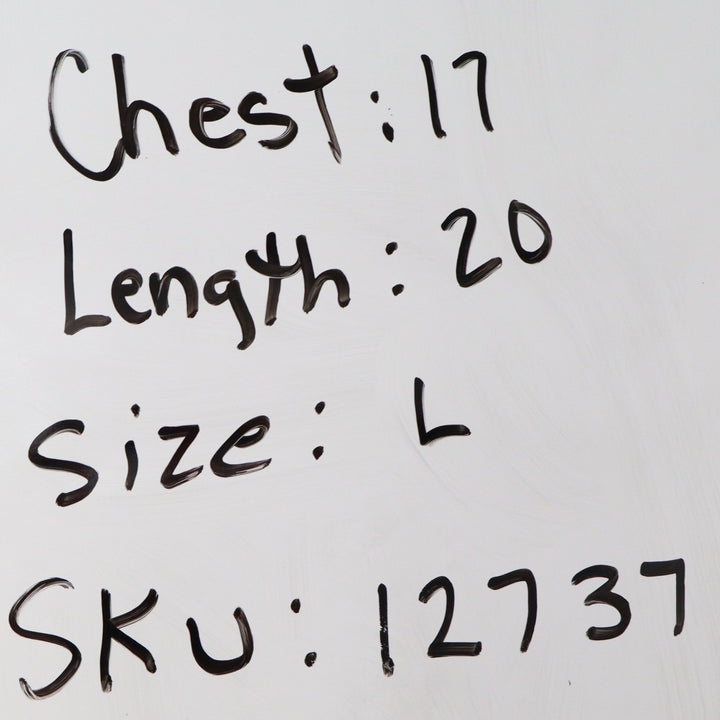 Chest: 17
Length: 20
Size: L
SKU: 12737